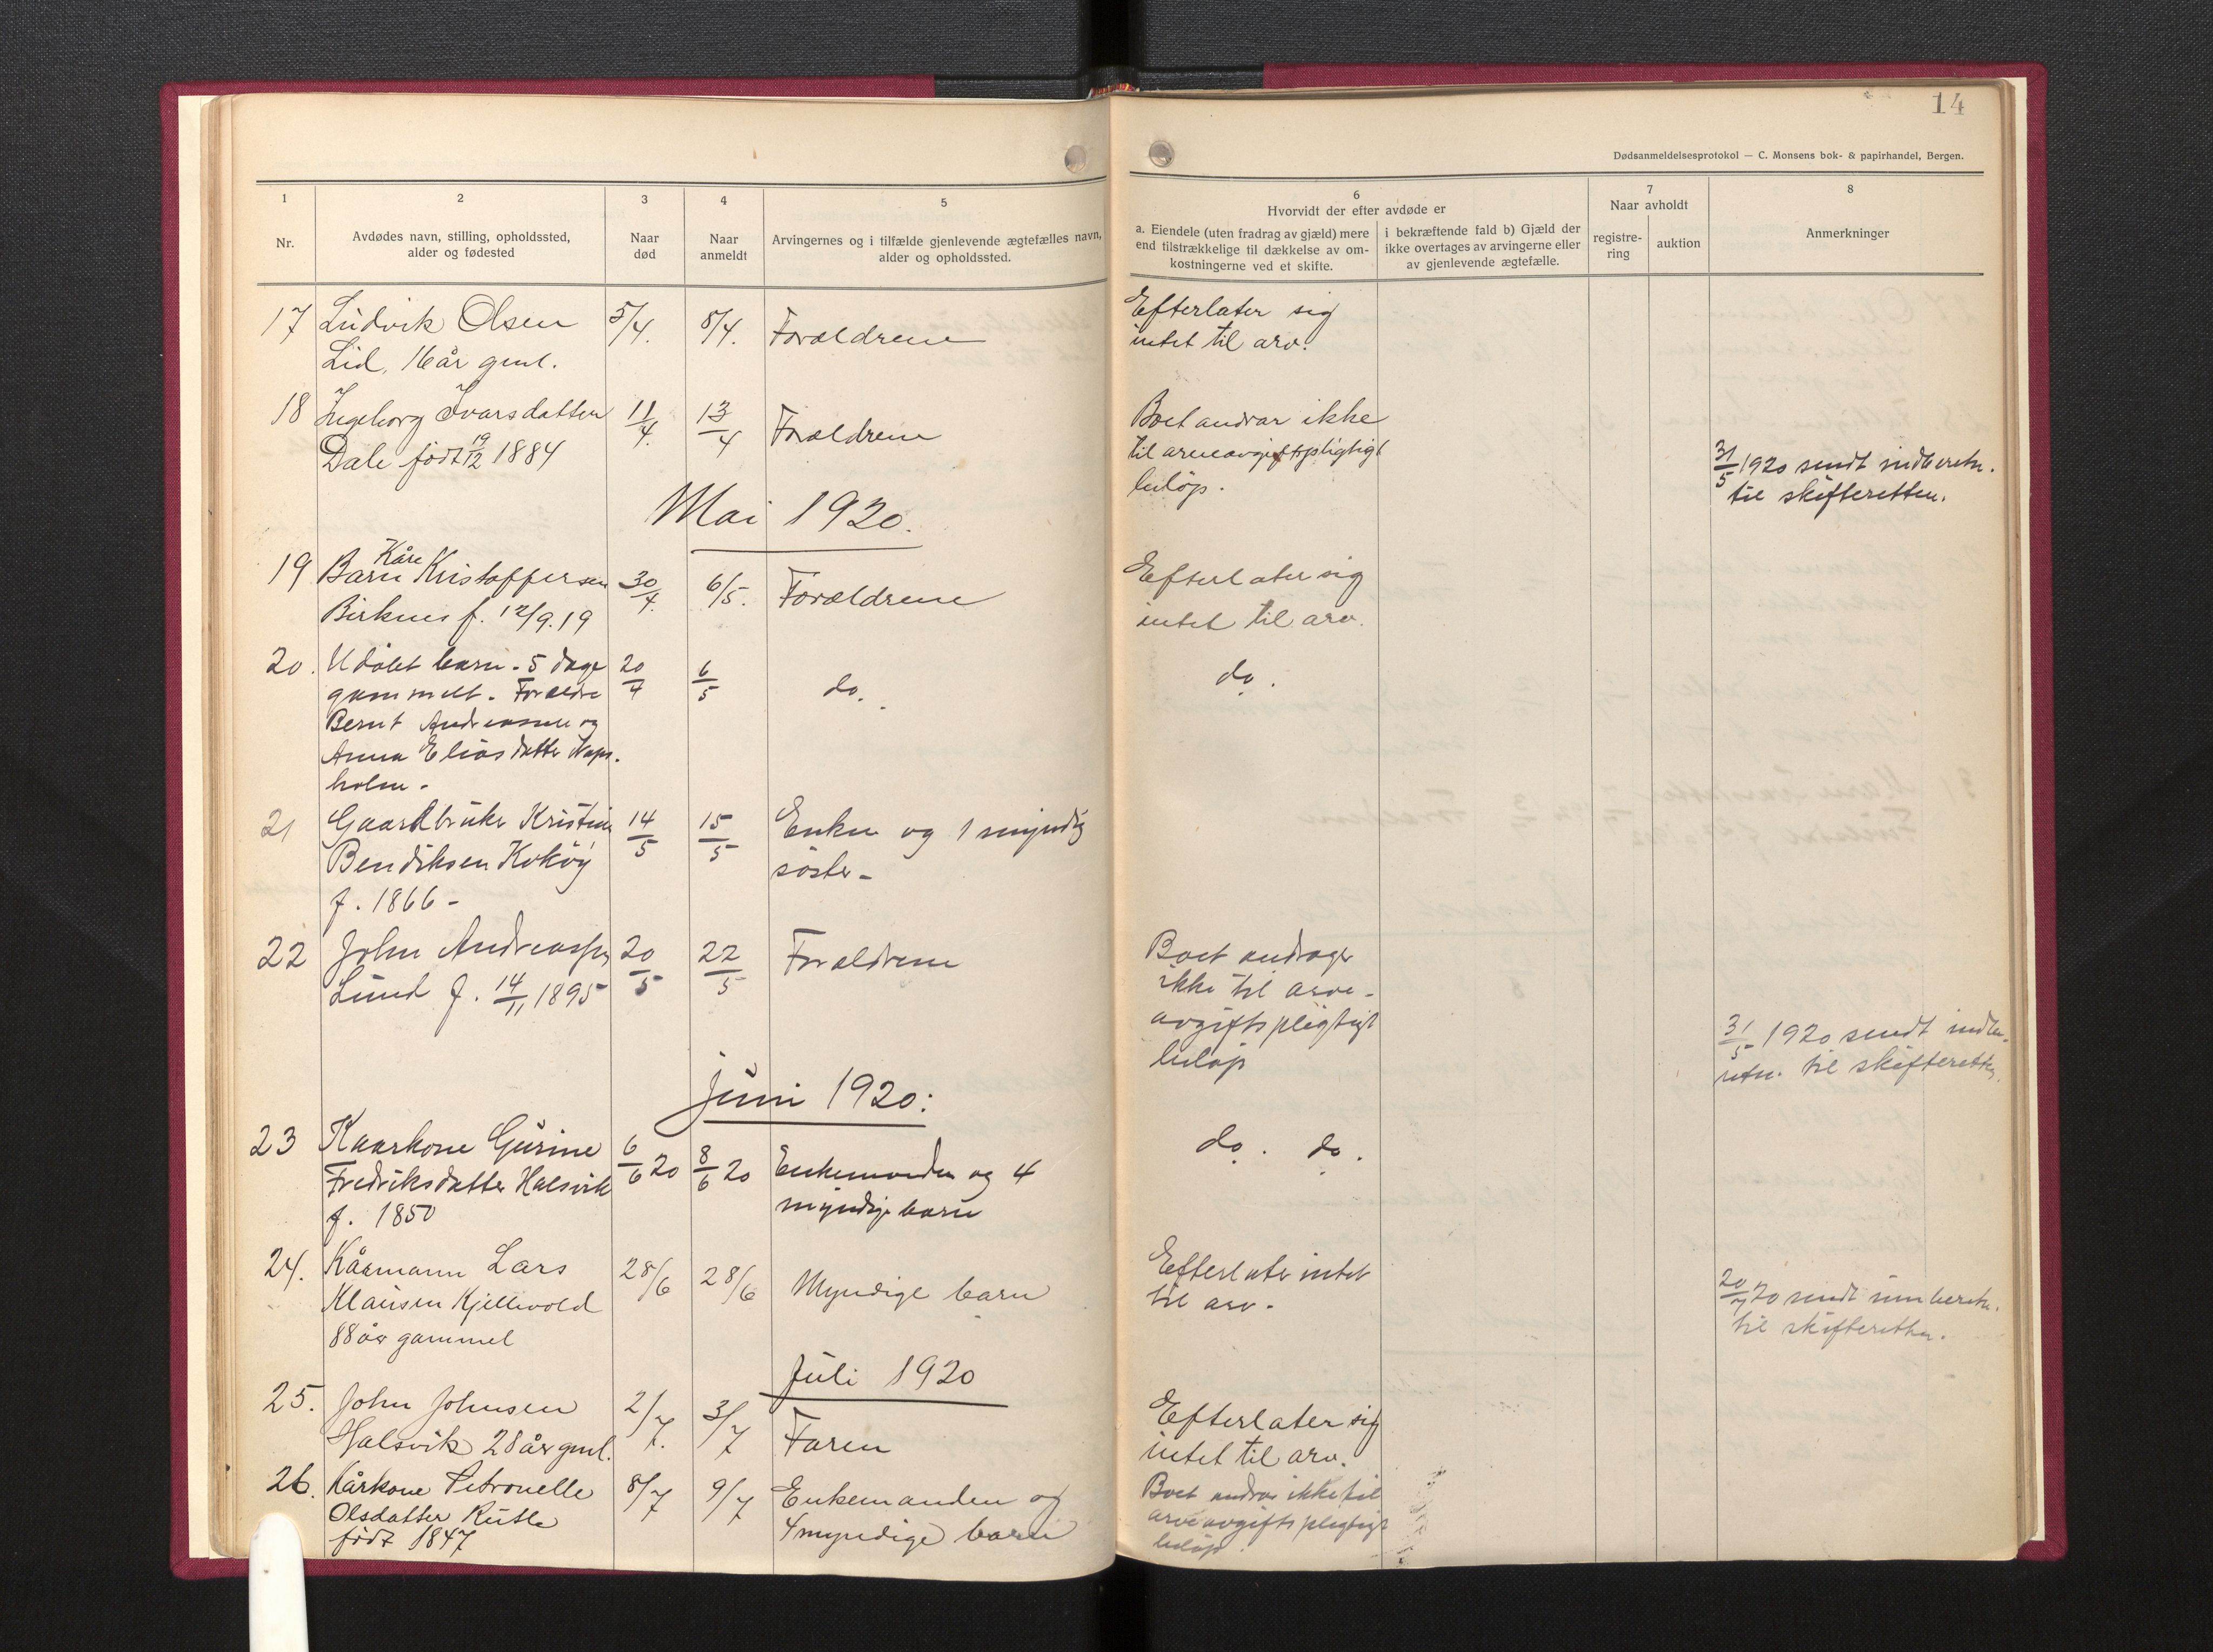 14
Dødsanmeldelsesprotokol — C. Monsens bok- & papirhandel, Bergen.
1
2
3
4
5
6
7
8
Nr.
Avdødes navn, stilling, opholdssted,
alder og fødested
Naar
død
Naar
anmeldt
Arvingernes og i tilfælde gjenlevende ægtefælles navn,
alder og opholdssted.
Hvorvidt der efter avdøde er
a. Eiendele (uten fradrag av gjæld) mere
end tilstrækkelige til dækkelse av om-
kostningerne ved et skifte.
i bekræftende fald b) Gjæld der
ikke overtages av arvingerne eller
av gjenlevende ægtefælle.
Naar avholdt
registre-
ring
auktion
Anmerkninger
17 Ludvik Olsen 5/4. 8/4. Forældrene Efterlater sig
Lid, 16 år gml. intet til arv.
18 Ingeborg Ivarsdatter 11/4. 13/4 Forældrene Boet andrar ikke
Dale født 19/12 1884 til arveavgiftspligtigt
beløp.
31/5 1920 sendt indberetn.
til skifteretten.
Mai 1920.
19 Barn Kåre Kristoffersen 30/4. 6/5. Forældrene Efterlater sig
Birknes f. 12/9.19 intet til arv.
20. Udøbt barn. 5 dage 20/4 6/5 do. do.
gammelt. Forældre
Bernt Andreassen og
Anna Eliasdatter
holm.
21 Gaardbruker Kristian 14/5 15/5 Enke og 1 myndig
Bendiksen søster
f. 1866 -
22 John Andreassen 20/5 22/5 Forældrene Boet andrager
Lund f. 14/11 1895 ikke til arve-
avgiftspligtigt
beløp
31/5 1920 sendt indbe-
retn. til skifteretten.
Juni 1920:
23 Kaarkone Gurine 6/6 20 8/6 20 Enkemanden og 4 do. do.
Fredriksdatter Halsvik myndige barn
f. 1850
24. Kårmann Lars 28/6 28/6 Myndige barn Efterlater intet
Klausen Kjellevold til arv.
88 år gammel
20/7 20 sendt innberetn.
til skifteretten.
Juli 1920
25. John Johnsen 2/7. 3/7 Faren Efterlater sig
Halsvik 28 år gml. intet til arv.
26. Kårkone Petronelle 8/7 9/7 Enkemanden og Boet andrar ikke til
Olsdatter Rutle 4 myndige barn arveavgiftspligtigt
født 1847 beløp.